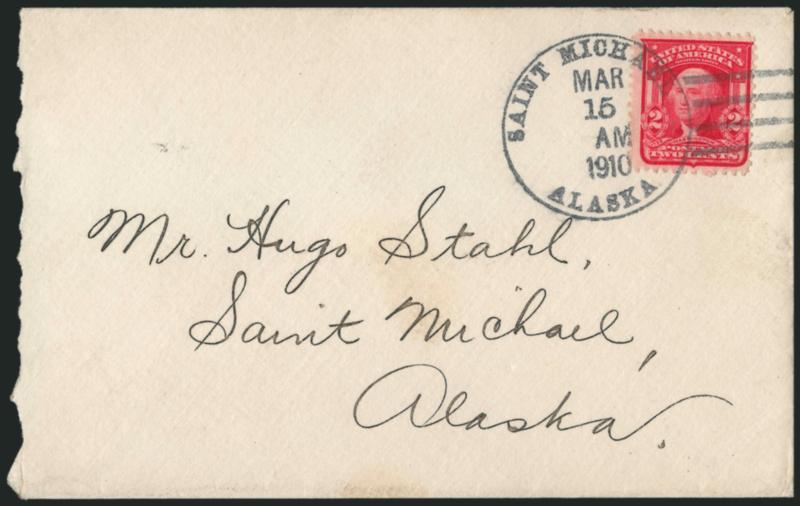 SAINT MICHAEL
MAR
15
AM
1910
ALASKA
UNITED STATES
OF AMERICA
2 2
POSTAGE
TWO CENTS
Mr. Hugo Stahl,
Saint Michael,
Alaska.